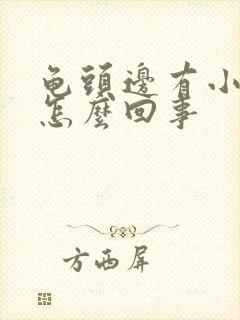 龟頭邊有小
怎麼回事
方西屏